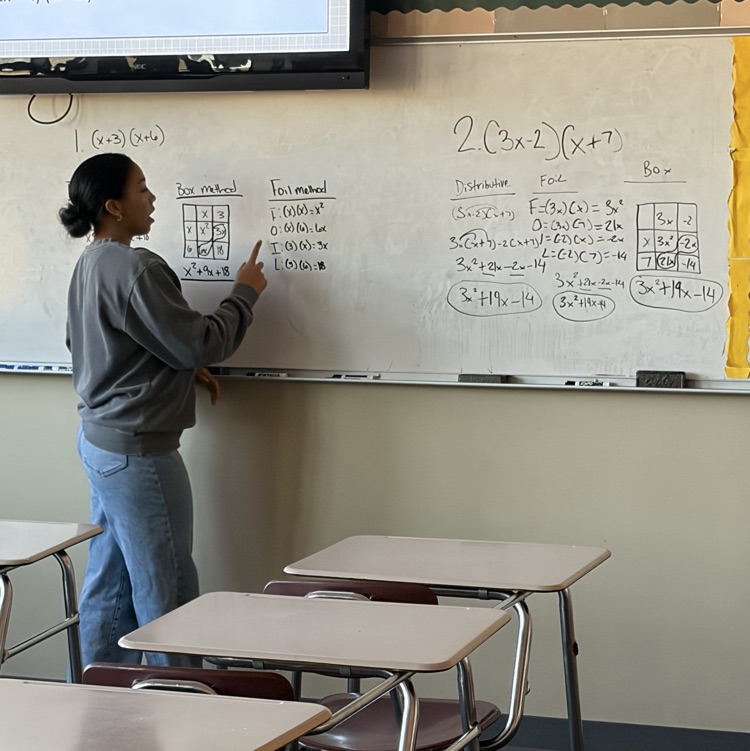 1. (x+3)(x+6)
Box method
x 3
x x² 3x
6 6x 18
x²+9x+18
Foil method
F: (x)(x)=x²
O: (x)(6)=6x
I: (3)(x)=3x
L: (3)(6)=18
2. (3x-2)(x+7)
Distributive
(3x-2)(x+7)
3x(x+7)-2(x+7)
3x²+21x-2x-14
3x²+19x-14
Foil
F=(3x)(x)= 3x²
O=(3x)(7)=21x
I=(-2)(x)=-2x
L=(-2)(7)=-14
3x²+21x-2x-14
3x²+19x-14
Box
3x -2
x 3x² -2x
7 21x -14
3x²+19x-14